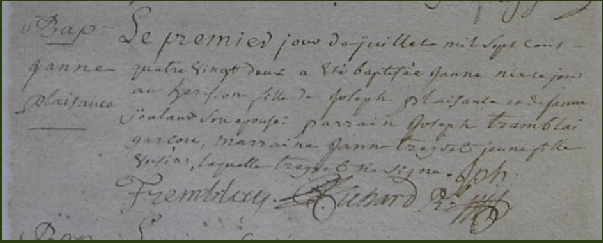 Bap
janne
plaisance
Le premier jour de juillet mil sept cent
quatre vingt deux a été baptisée janne née ce jour
au herisson fille de joseph plaisance et de janne
son epouse parrain joseph tramblai
garcon, marraine janne jeune fille
laquelle ne signe. Jph.
Tremblay. Richard